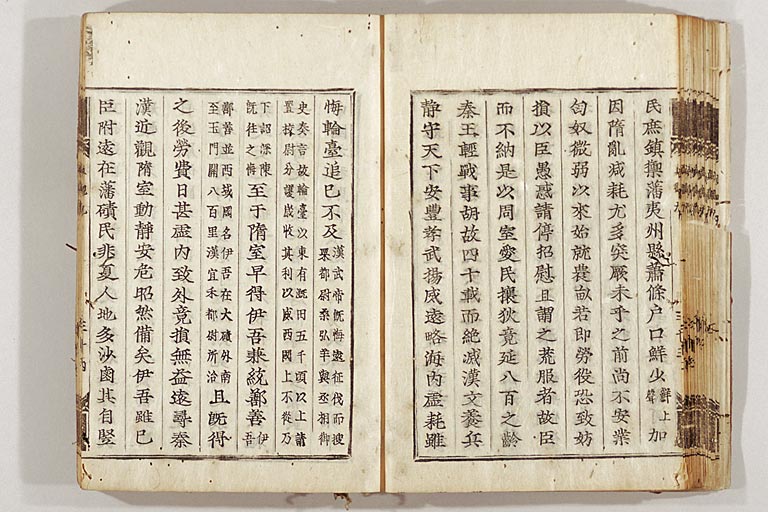 民庶鎮禦藩夷州縣蕭條户口鮮少鮮上聲加
因隋亂減耗尤多突厥未平之前尚不安業
匈奴微弱以來始就農畝若即勞役恐致妨
損以臣愚惑請停招慰且謂之荒服者故臣
而不納是以周室愛民攘狄竟延八百之齡
秦王輕戰事胡故四十載而絶滅漢文養兵
静守天下安豐孝武揚威遠略海内虛耗雖
悔輪臺追已不及漢武帝既悔遠征伐而搜
粟都尉桑弘羊與丞相御
史奏言故輪臺以東有溉田五千頃以上請
置校尉分護歲收其利以威西國上不從乃
下詔深陳
既往之悔至于隋室早得伊吾兼統鄯善伊吾
鄯善並西域國名伊吾在大磧外南
至玉門關八百里漢宜禾都尉所治且既得
之後勞費日甚虛内致外竟損無益遠尋秦
漢近觀隋室動靜安危昭然備矣伊吾雖已
臣附遠在藩磧民非夏人地多沙鹵其自豎